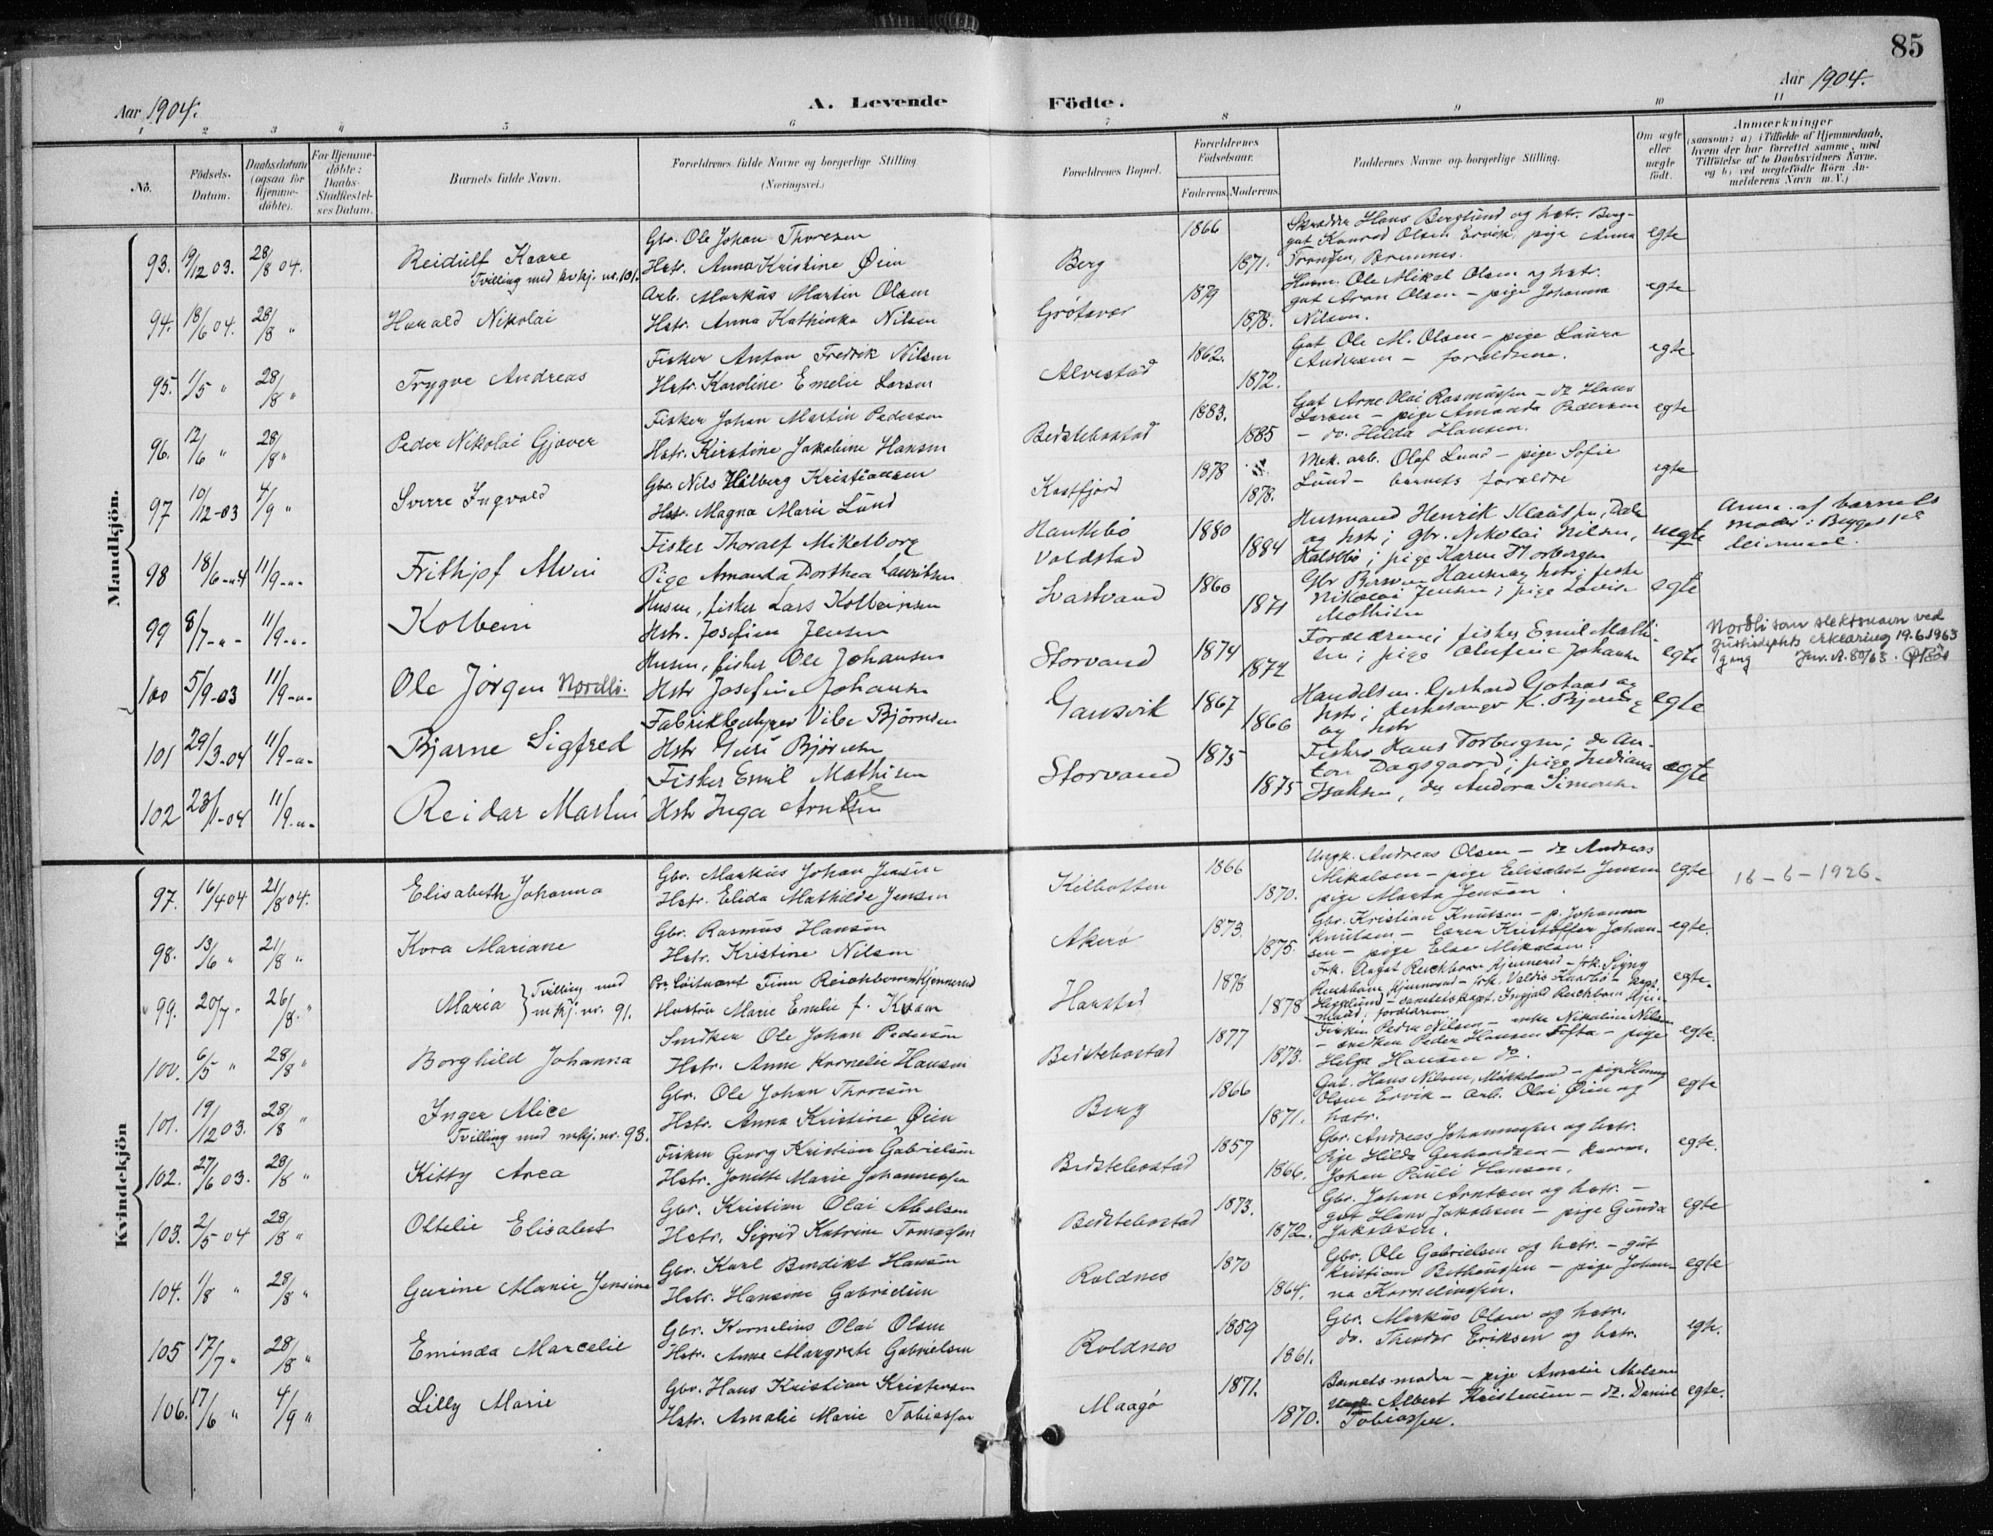 85
Aar 1904.
A. Levende Födte.
Aar 1904.
1 2 3 4 5 6 7 8 9 10 11
No.
Födsels-Datum.
Daabsdatum (ogsaa for Hjemme-döbte).
For Hjemme-döbte: Daabs-Stadfæstel-ses Datum.
Barnets fulde Navn.
Forældrenes fulde Navne og borgerlige Stilling
(Næringsvei.)
Forældrenes Bopæl.
Forældrenes Födselsaar.
Faderens. Moderens.
Faddernes Navne og borgerlige Stilling.
Om ægte eller uægte födt.
Anmærkninger
(saasom: a) i Tilfælde af Hjemmedaab, hvem der har forrettet samme, med Tilföielse af to Daabsvidners Navne, og b) ved uægtefödte Börn An-melderens Navn m. V.)
Mandkjön.
93. 19/12 03. 28/8 04. Reidulf Kaare
Tvilling med kvkj. nr. 101.
Gbr. Ole Johan Thoresen
Hstr. Anna Kristine Øien
Berg 1866 1871.
Skrædder Hans Berglund og hstr. Berg-
gut Konrad Olsen Ervik, pige Anna
egte
94. 18/6 04. 28/8 " Harald Nikolai
Arb. Markus Martin Olsen
Hstr. Anna Kathinka Nilsen
Grøtavær 1879 1878.
Husm. Ole Mikal Olsen og hstr.
gut Aron Olsen – pige Johanna
Nilsen.
egte
95. 1/5 " 28/8 " Trygve Andreas
Fisker Anton Fredrik Nilsen
Hstr. Karoline Emelie Larsen
Alvestad 1862. 1872.
Gut Ole M. Olsen – pige Laura
Andersen – forældrene.
egte
96. 12/6 " 28/8 " Peder Nikolai Gjæver
Fisker Johan Martin Pedersen
Hstr. Kirstine Jakobine Hansen
Bedstebostad 1883. 1885
Gut Arne Olai Rasmussen – do Hans
Larsen – pige Amanda Pedersen
– do. Hilda Hansen.
egte
97 10/12-03 4/9 " Sverre Ingvald
Gbr. Nils Hilberg Kristiansen
Hstr. Magna Marie Lund
Kastfjord 1878 1878.
Mek. arb. Olaf Lund – pige Sofie
Lund – barnets forældre
egte
98 18/6-04 11/9-"- Frithjof Alvin
Fisker Thoralf Mikelborg
Pige Amanda Dorthea Lauritsen
Voldstad 1880 1884
Husmand Henrik Klaussen, Dale
og hstr; Gbr. Nikolai Nilsen,
pige Karen Torbergsen
uegte
Anm. af barnets
moder: Begges 1ste
leiermaal.
99 8/7-"- 11/9-"- Kolbein
Husm., fisker Lars Kolbeinsen
Hstr. Josefine Jensen
1860 1871
Nikolai Jensen; pige Lovise
Mathisen
egte
100 5/9-03 11/9-"- Ole Jørgen Nordli.
Husm., fisker Ole Johansen
Hstr Josefine Johansen
Storvand 1874 1872
Forældrene; fisker Emil Mathi-
sen; pige Olufine Johansen
egte
Nordli som slektsnavn ved
Justisdeptets erklæring 19.6.1963
Jnr. A. 80/63.
101 29/3-04 11/9-"- Bjarne Sigfred
Fabrikbestyrer Vibe Bjørnsen
Hstr Guri Bjørnsen
Gausvik 1867 1866
Handelsm. Gerhard Gotaas og
hstr; kirkesanger K. Bjerring
og hstr
egte
102 23/1-04 11/9-"- Reidar Martin
Fisker Emil Mathisen
Hstr Inga Arntsen
Storvand 1875 1875
Fisker Hans Torbergsen; do An-
ton Dagsgaard; pige Indiana
Isaksen, do Andora Simonsen
egte
Kvindekjön
97. 16/4 04 21/8 04. Elisabeth Johanna
Gbr. Markus Johan Jensen
Hstr. Elida Mathilde Jensen
Kilbotten 1866 1870.
Ungk. Andreas Olsen – do Andreas
Mikalsen – pige Elisabet Jensen
pige Marta Jensen.
egte
16-6-1926.
98. 13/6 " 21/8 " Kora Mariane
Gbr. Rasmus Hansen
Hstr. Kristine Nilsen
Akerø 1873. 1875.
Gbr. Kristian Knutsen – p. Johanna
Knutsen – lærer Kristoffer Johan-
sen – pige Else Mikalsen.
egte.
99. 20/7 " 26/8. " Maria } Tvilling med
mkj. nr. 91.
Pr. Löitnant Finn Reichborn Kjennerud
Hustru Marie Emelie f. Kvam
Harstad 1876 1878
Frk. Aagot Reichborn Kjennerud – frk. Signy
egte.
100. 6/5 " 28/8 " Borghild Johanna
Smdker Ole Johan Pedersen
Hstr. Anne Kornelie Hansen
Bedstebostad 1877 1873.
Fisker Peder Nilsen – enke Nikoline Nilsen
– snedker Peder Hansen Tofta – pige
Helga Hansen do.
egte.
101. 19/12 03. 28/8 " Inger Alice
Tvilling med mkj. nr. 93.
Gbr. Ole Johan Thoresen
Hstr. Anna Kristine Øien
Berg 1866 1871.
Gut. Hans Nilsen, Møkkeland – pige Henny
Olsen Ervik – arb. Olai Øien og
hstr.
egte
102. 27/6 03. 28/8 " Kitty Area
Fisker Georg Kristian Gabrielsen
Hstr. Jonette Marie Johannessen
Bedstebostad 1857 1866.
Gbr. Andreas Johannessen og hstr.
Pige Hilda Gerhardsen – barn.
Johan Pauli Hansen.
egte.
103. 2/5 04 28/8 " Oltelie Elisabet
Gbr. Kristian Olai Abelsen
Hstr. Sigrid Katrine Tomassen
Bedstebostad 1873. 1872.
Gbr. Johan Arntsen og hstr. –
gut Hans Jakobsen – pige Gunda
Jakobsen.
egte
104. 1/8 " 28/8 " Gurine Marie Jensine
Gbr. Karl Bendikt Hansen
Hstr. Hansine Gabrielsen
Roldnes 1870 1864.
Gbr. Ole Gabrielsen og hstr. – gut
Kristian Bethenssen – pige Johan-
na Korneliussen.
egte
105 17/7 " 28/8 " Eminda Marcelie
Gbr. Kornelius Olai Olsen
Hstr. Anne Margrete Gabrielsen
Roldnes 1859 1861.
Gbr. Markus Olsen og hstr.
do. Theodor Eriksen og hstr.
egte.
106. 17/6 " 4/9 " Lilly Marie
Gbr. Hans Kristian Kristensen
Hstr. Amalie Marie Tobiassen
Maagø 1871. 1870.
Barnets moder – pige Amalie Abelsen
Albert Kristensen – do. Daniel
Tobiassen.
egte.